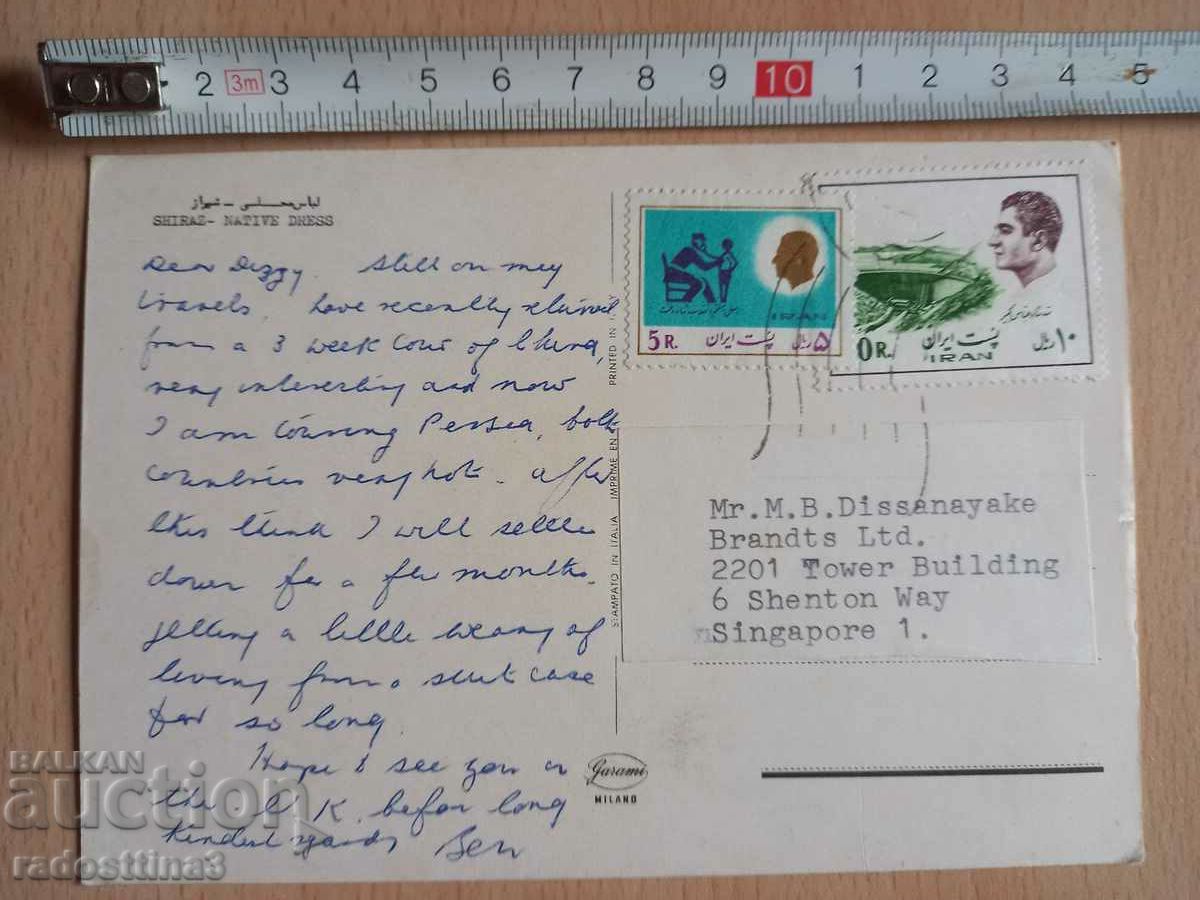 2 3m 3 4 5 6 7 8 9 10 1 2 3 4 5
لباس محلی - شیراز
SHIRAZ- NATIVE DRESS
Dear Dizzy. Still on my
travels, have recently returned
from a 3 week tour of China,
very interesting and now
I am touring Persia, both
countries very hot. after
this think I will settle
down for a few months.
getting a little weary of
living from a suit case
for so long
Hope to see you in
the U.K. before long
Kindest regards Ben
STAMPATO IN ITALIA IMPRIME EN PRINTED IN ITALY
IRAN
5 R. پست ایران ۵ ریال
0 R. پست ایران ۱۰ ریال
IRAN
Mr.M.B.Dissanayake
Brandts Ltd.
2201 Tower Building
6 Shenton Way
Singapore 1.
Garami
MILANO
BALKAN
auction
radosttina3